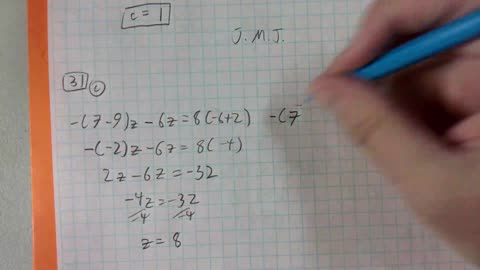 c = 1
J. M. J.
31 c
-(7-9)z - 6z = 8(-6+2) -(7
-(-2)z - 6z = 8(-4)
2z - 6z = -32
-4z = -32
-4 -4
z = 8